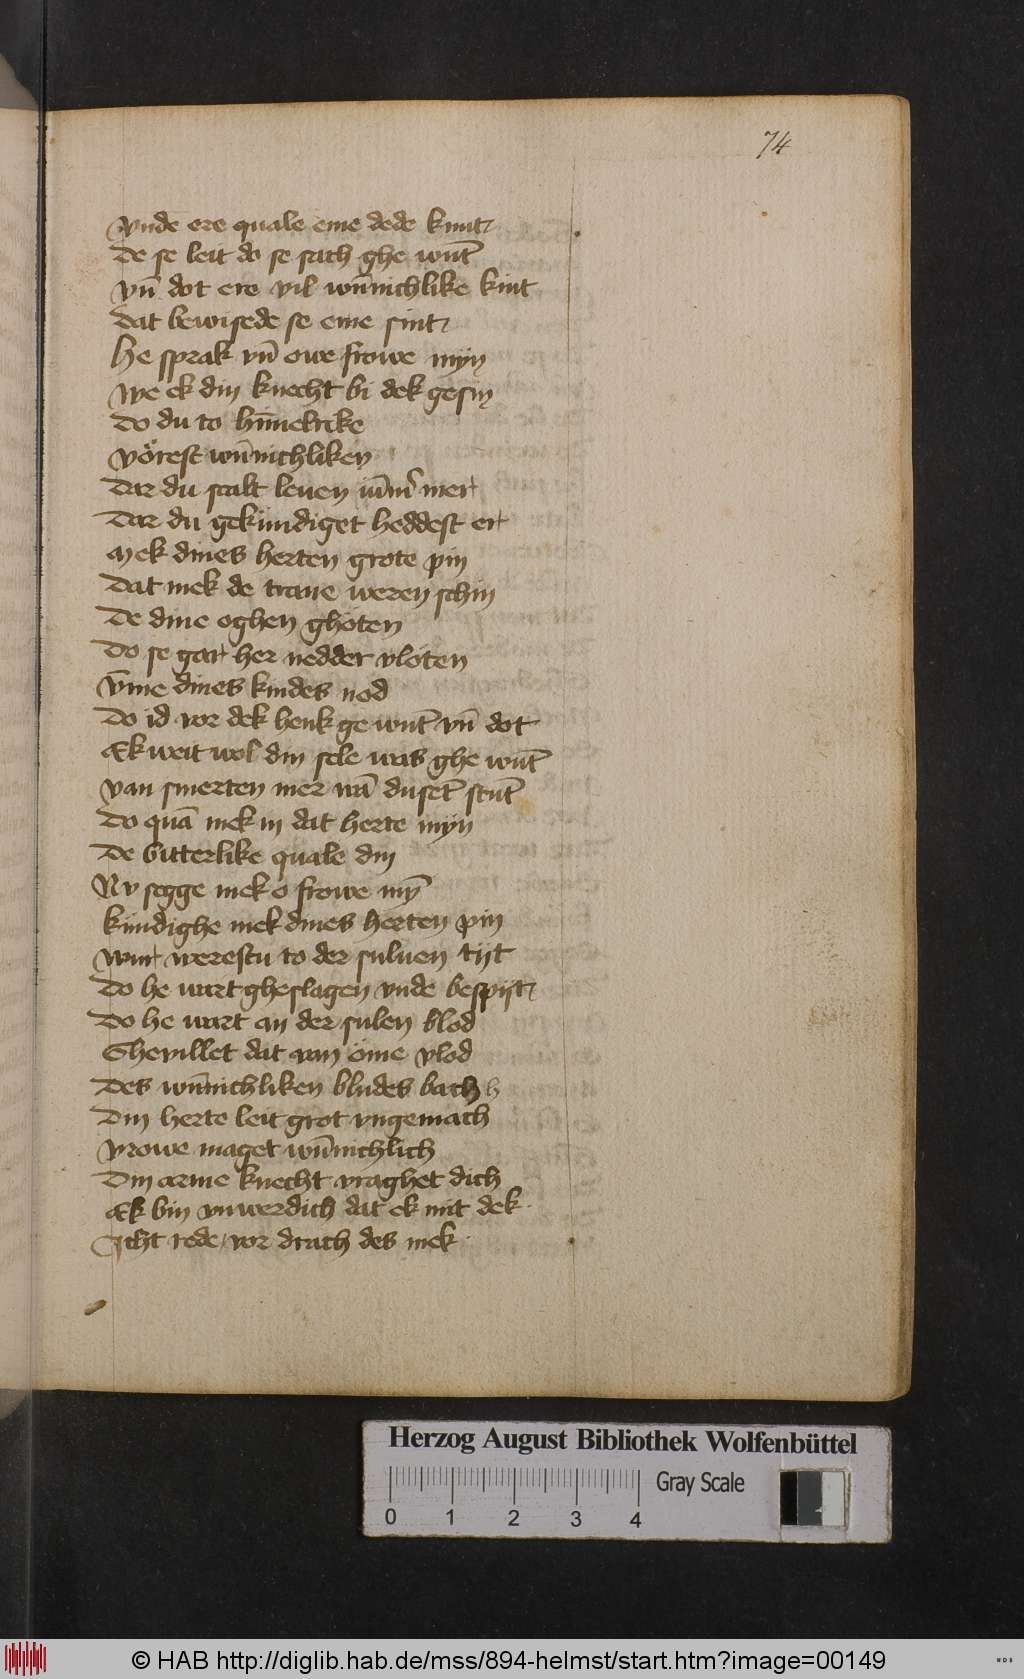 74
vnde ere quale eme dede kunt
De se leit do se sach ghe wūt
vn̄ dot ere vil wūnichlike kint
dat bewisede se eme sint
He sprak vn̄ owe frowe myn
we ek din knecht bi dek gesin
Do du to hīmelrike
vörest wūnichliken
Dar du scalt leuen mer
Dar du gekundiget heddest er
Mek dines herten grote pin
Dat mek de trane weren schin
De dine oghen ghöten
Do se gar her nedder vlöten
v̄me dines kindes nod
Do id vor dek henk ge wūt vn̄ dot
Ek weit wol din sele was ghe wūt
van smerten mer wā duset̄ stūt
Do quā mek in dat herte myn
De bitterlike quale din
Nv segge mek o frowe mȳ
kundighe mek dines herten pin
wur werestu to der suluen tijt
Do he wart gheslagen vnde bespiit
Do he wart an der sulen blod
Ghevillet dat van öme vlod
Des wūnichliken bludes bach
Din herte leit grot vngemach
vrowe maget wūnichlich
Din arme knecht vraghet dich
Ek bin vnwerdich dat ek mit dek
Icht rede vor drach des mek
Herzog August Bibliothek Wolfenbüttel
Gray Scale
0 1 2 3 4
© HAB http://diglib.hab.de/mss/894-helmst/start.htm?image=00149